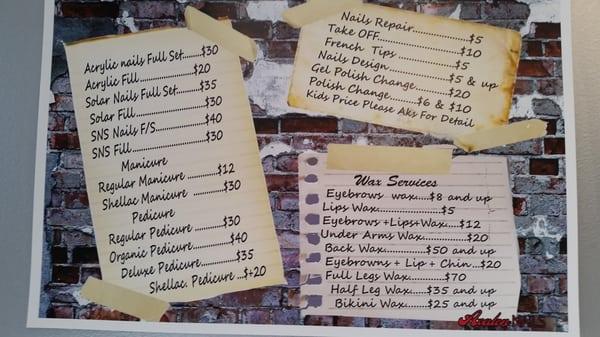 Acrylic nails Full Set......$30
Acrylic Fill................$20
Solar Nails Full Set......$35
Solar Fill....................$30
SNS Nails F/S..............$40
SNS Fill.......................$30
Manicure
Regular Manicure .........$12
Shellac Manicure .........$30
Pedicure
Regular Pedicure..........$30
Organic Pedicure..........$40
Deluxe Pedicure..........$35
Shellac. Pedicure ...$+20
Nails Repair...............$5
Take OFF....................$10
French Tips................$5
Nails Design...............$5 & up
Gel Polish Change........$20
Polish Change.......$6 & $10
Kids Price Please Aks For Detail
Wax Services
Eyebrows wax....$8 and up
Lips Wax.................$5
Eyebrows +Lips+Wax....$12
Under Arms Wax...........$20
Back Wax.........$50 and up
Eyebrowns + Lip + Chin...$20
Full Legs Wax.........$70
Half Leg Wax......$35 and up
Bikini Wax......$25 and up